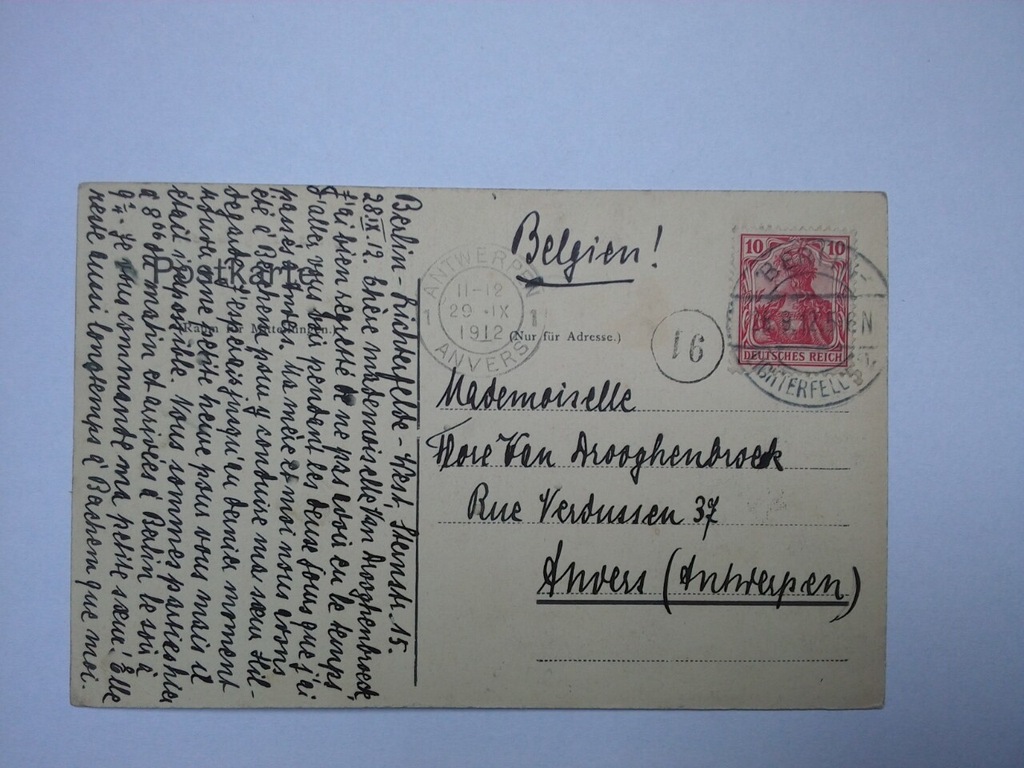 Belgien!
10 10
DEUTSCHES REICH
LICHTERFELDE
ANTWERPEN
11-12
29 IX
1 1912 1
ANVERS
16
Postkarte
(Nur für Adresse.)
(Raum für Mitteilungen.)
Mademoiselle
Flore Van Drooghenbroeck
Rue Verdussen 37
Anvers (Antwerpen)
Berlin-Lichterfelde-West, Sternstr. 15.
28 IX 12. Chère mademoiselle Van Drooghenbroeck,
J'ai bien regretté de ne pas avoir eu le temps
d'aller vous voir pendant les deux jours que j'ai
passés à Anvers. Ma mère et moi nous avons
été à Bachem pour y conduire ma sœur Hil-
degarde. J'espérais jusqu'au dernier moment
trouver une petite heure pour vous mais il
était impossible. Nous sommes parties hier
à 8 du matin et arrivées à Berlin le soir à
9 . Je vous commande ma petite sœur! Elle
reste aussi longtemps à Bachem que moi.